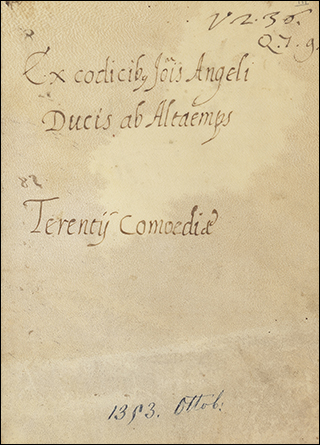 V. 2. 30.
Q. 7. 9.
Ex codicibꝫ Jõis Angeli
Ducis ab Altaemps
Terentij Comoediæ
1393. Ottob: